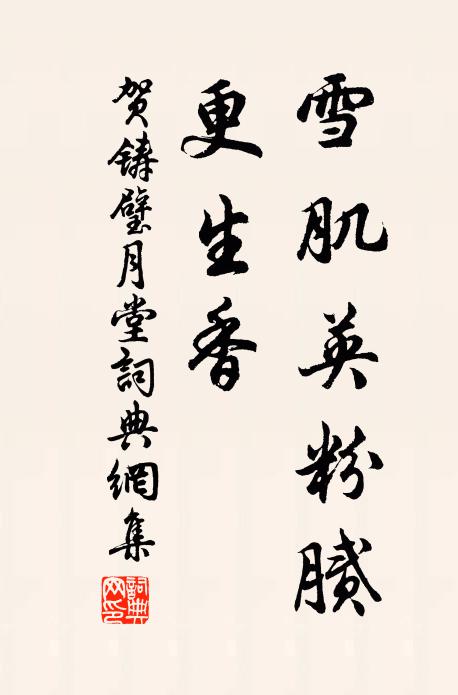 雪肌英粉膩
更生香
贺鑄璧月堂詞典網集
詞典网印